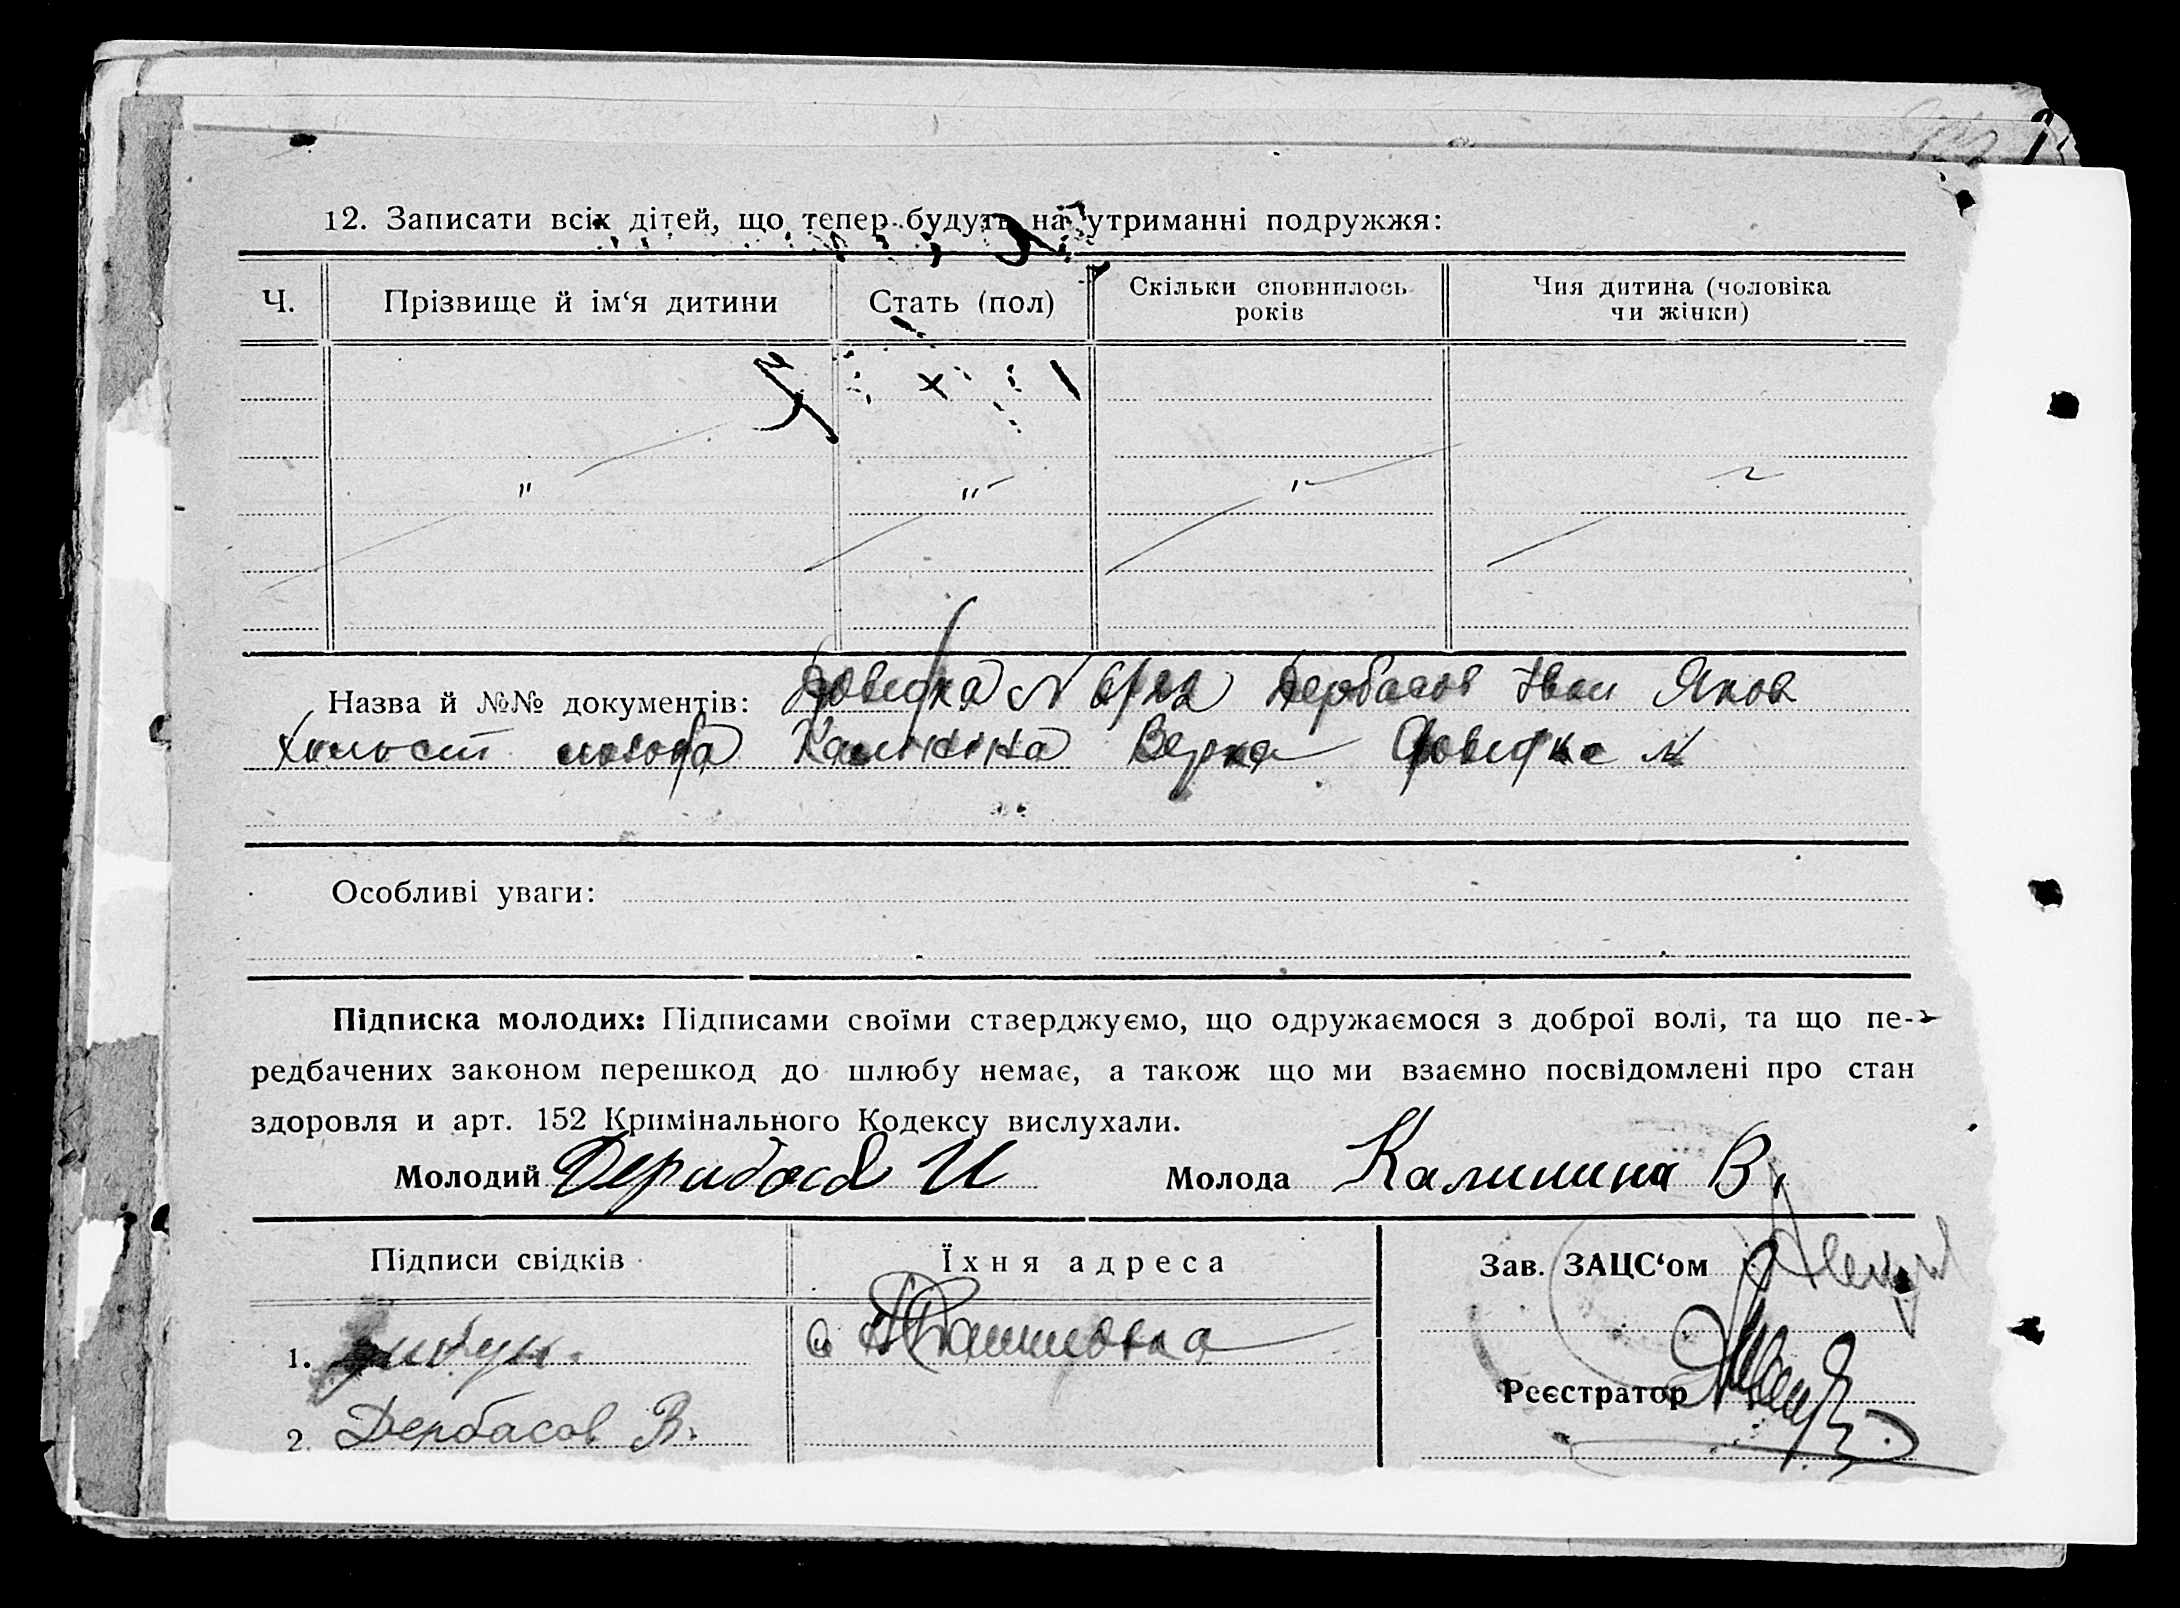 12. Записати всіх дітей, що тепер будуть на утриманні подружжя:
Ч. Прізвище й ім‘я дитини Стать (пол) Скільки сповнилось років Чия дитина (чоловіка чи жінки)
" " "
Назва й №№ документів: Довидка N Дербасов Іван Яков
Холост молода Калініна Вера Довидка №
Особливі уваги:
Підписка молодих: Підписами своїми стверджуємо, що одружаємося з доброї волі, та що пе-
редбачених законом перешкод до шлюбу немає, а також що ми взаємно посвідомлені про стан
здоровля и арт. 152 Кримінального Кодексу вислухали.
Молодий Дерибасов И Молода Калинина В.
Підписи свідків Їхня адреса Зав. ЗАЦС‘ом
1. с
Реєстратор
2. Дербасов В.